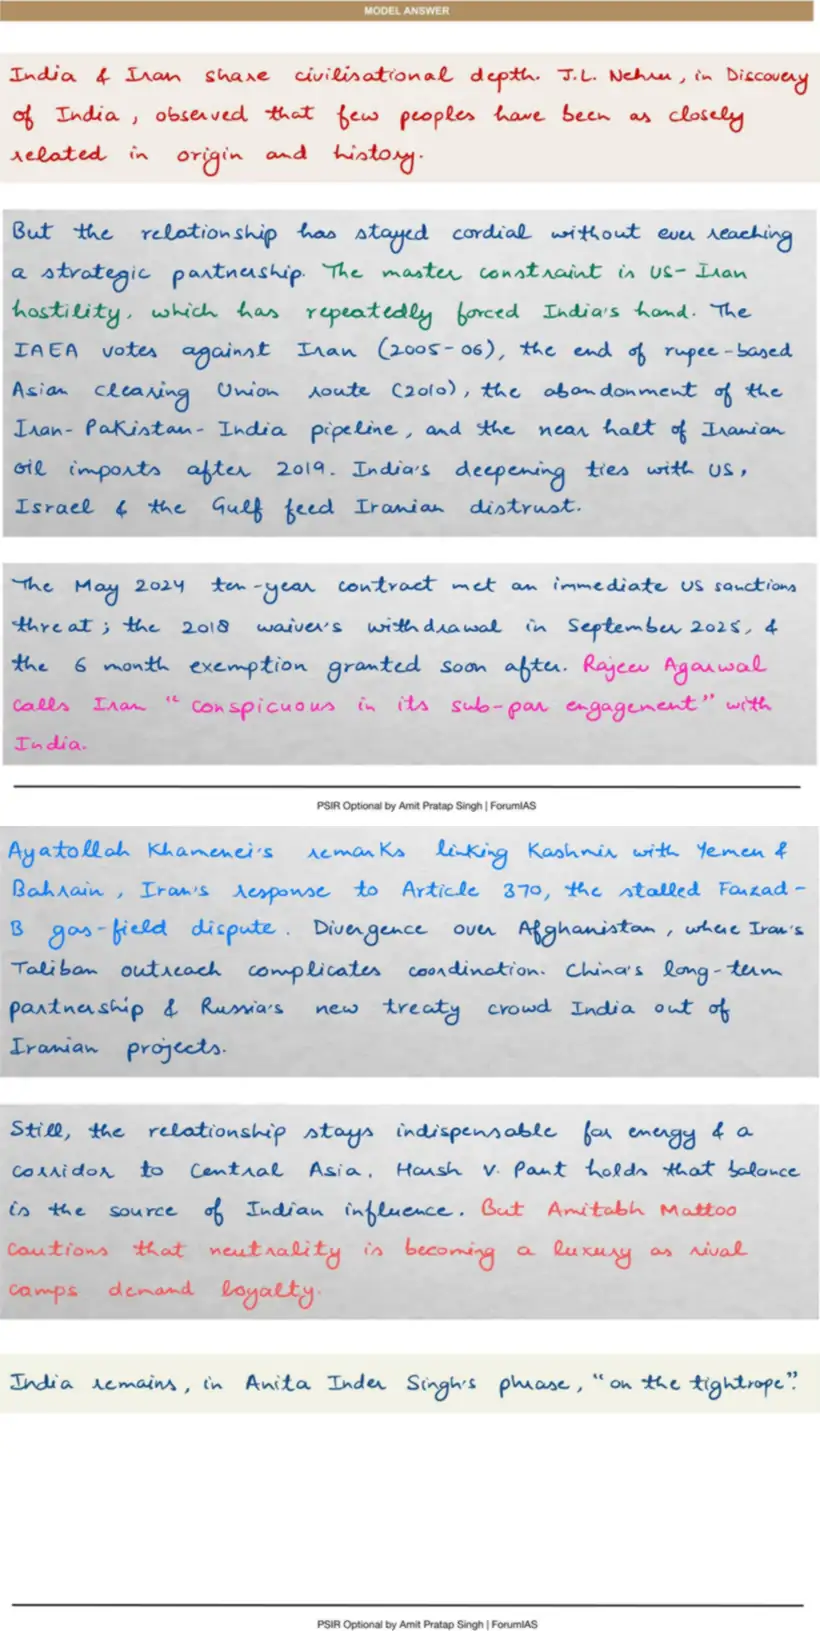 MODEL ANSWER
India & Iran share civilisational depth. J.L. Nehru, in Discovery
of India, observed that few peoples have been as closely
related in origin and history.
But the relationship has stayed cordial without ever reaching
a strategic partnership. The master constraint is US-Iran
hostility, which has repeatedly forced India's hand. The
IAEA votes against Iran (2005-06), the end of rupee-based
Asian Clearing Union route (2010), the abandonment of the
Iran-Pakistan-India pipeline, and the near halt of Iranian
oil imports after 2019. India's deepening ties with US,
Israel & the Gulf feed Iranian distrust.
The May 2024 ten-year contract met an immediate US sanctions
threat; the 2018 waiver's withdrawal in September 2025, &
the 6 month exemption granted soon after. Rajeev Agarwal
calls Iran "conspicuous in its sub-par engagement" with
India.
PSIR Optional by Amit Pratap Singh | ForumIAS
Ayatollah Khamenei's remarks linking Kashmir with Yemen &
Bahrain, Iran's response to Article 370, the stalled Farzad-
B gas-field dispute. Divergence over Afghanistan, where Iran's
Taliban outreach complicates coordination. China's long-term
partnership & Russia's new treaty crowd India out of
Iranian projects.
Still, the relationship stays indispensable for energy & a
corridor to Central Asia. Harsh V. Pant holds that balance
is the source of Indian influence. But Amitabh Mattoo
cautions that neutrality is becoming a luxury as rival
camps demand loyalty.
India remains, in Anita Inder Singh's phrase, "on the tightrope".
PSIR Optional by Amit Pratap Singh | ForumIAS